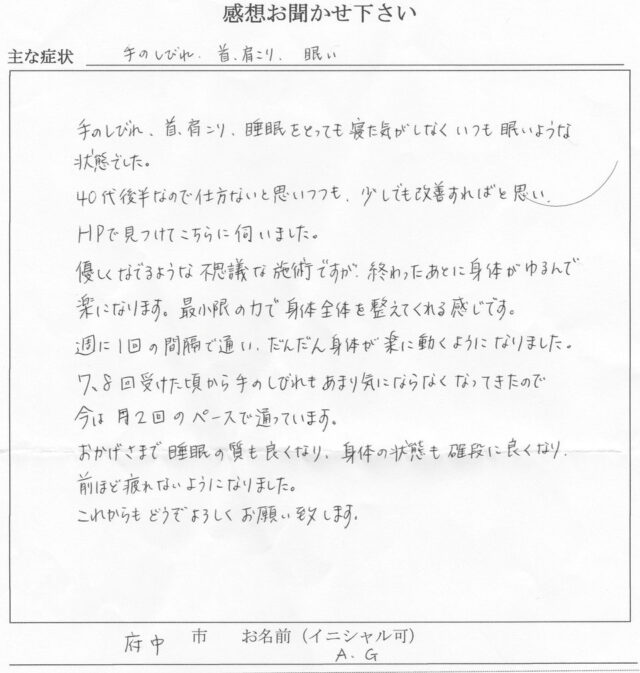 感想お聞かせ下さい
主な症状 手のしびれ、首、肩こり、眠い
手のしびれ、首、肩こり、睡眠をとっても寝た気がしなくいつも眠いような
状態でした。
40代後半なので仕方ないと思いつつも、少しでも改善すればと思い、
HPで見つけてこちらに伺いました。
優しくなでるような不思議な施術ですが、終わったあとに身体がゆるんで
楽になります。最小限の力で身体全体を整えてくれる感じです。
週に1回の間隔で通い、だんだん身体が楽に動くようになりました。
7、8回受けた頃から手のしびれもあまり気にならなくなってきたので
今は月2回のペースで通っています。
おかげさまで睡眠の質も良くなり、身体の状態も確段に良くなり、
前ほど疲れないようになりました。
これからもどうぞよろしくお願い致します。
府中 市 お名前（イニシャル可）
A.G